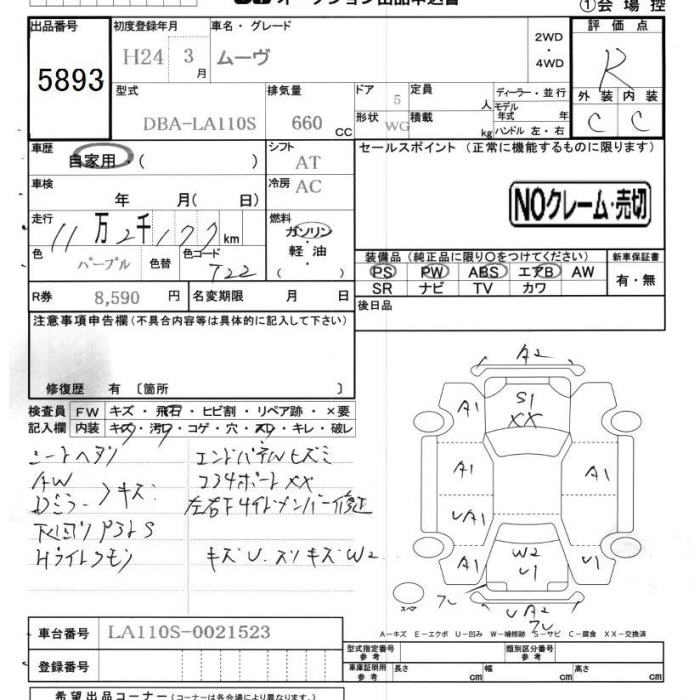 オークション出品申込書
①会場控
出品番号
5893
初度登録年月
H24 3月
車名・グレード
ムーヴ
2WD・4WD
評価点
R
外装 内装
C C
型式
DBA-LA110S
排気量
660 CC
ドア 5
形状 WG
定員 人
積載 kg
ディーラー・並行
モデル年式 年
ハンドル 左・右
車歴
自家用・( )
シフト AT
セールスポイント (正常に機能するものに限ります)
NOクレーム・売切
車検 年 月( 日)
冷房 AC
走行
11万2千177km
燃料
ガソリン・軽油
( )
色 パープル 色替
色コード T22
装備品(純正品に限り○をつけてください)
PS PW ABS エアB AW
SR ナビ TV カワ
新車保証書
有・無
R券 8,590円
名変期限 月 日
後日品
注意事項申告欄(不具合内容等は具体的に記入して下さい)
修復歴 有〔箇所 〕
検査員記入欄
FW キズ・飛石・ヒビ割・リペア跡・×要
内装 キズ・汚れ・コゲ・穴・スレ・キレ・破レ
シートヘタリ
AW
Dミラー>キズ
下回りサビS
Hライトクモリ
エンドパネルヒズミ
コア4ポートXX
左右F4イドメンバー修正
キズU.スリキズW2
A2
S1
XX
A1 A1
A1 A1
UA1
W2
U1
A1 A1
UA2
スペア
A-キズ E-エクボ U-凹み W-補修跡 S-サビ C-腐食 XX-交換済
車台番号 LA110S-0021523
登録番号
型式指定番号
類別区分番号
車庫証明用参考
長さ cm 幅 cm 高さ cm
希望出品コーナー(コーナーは各会場により異なります。)